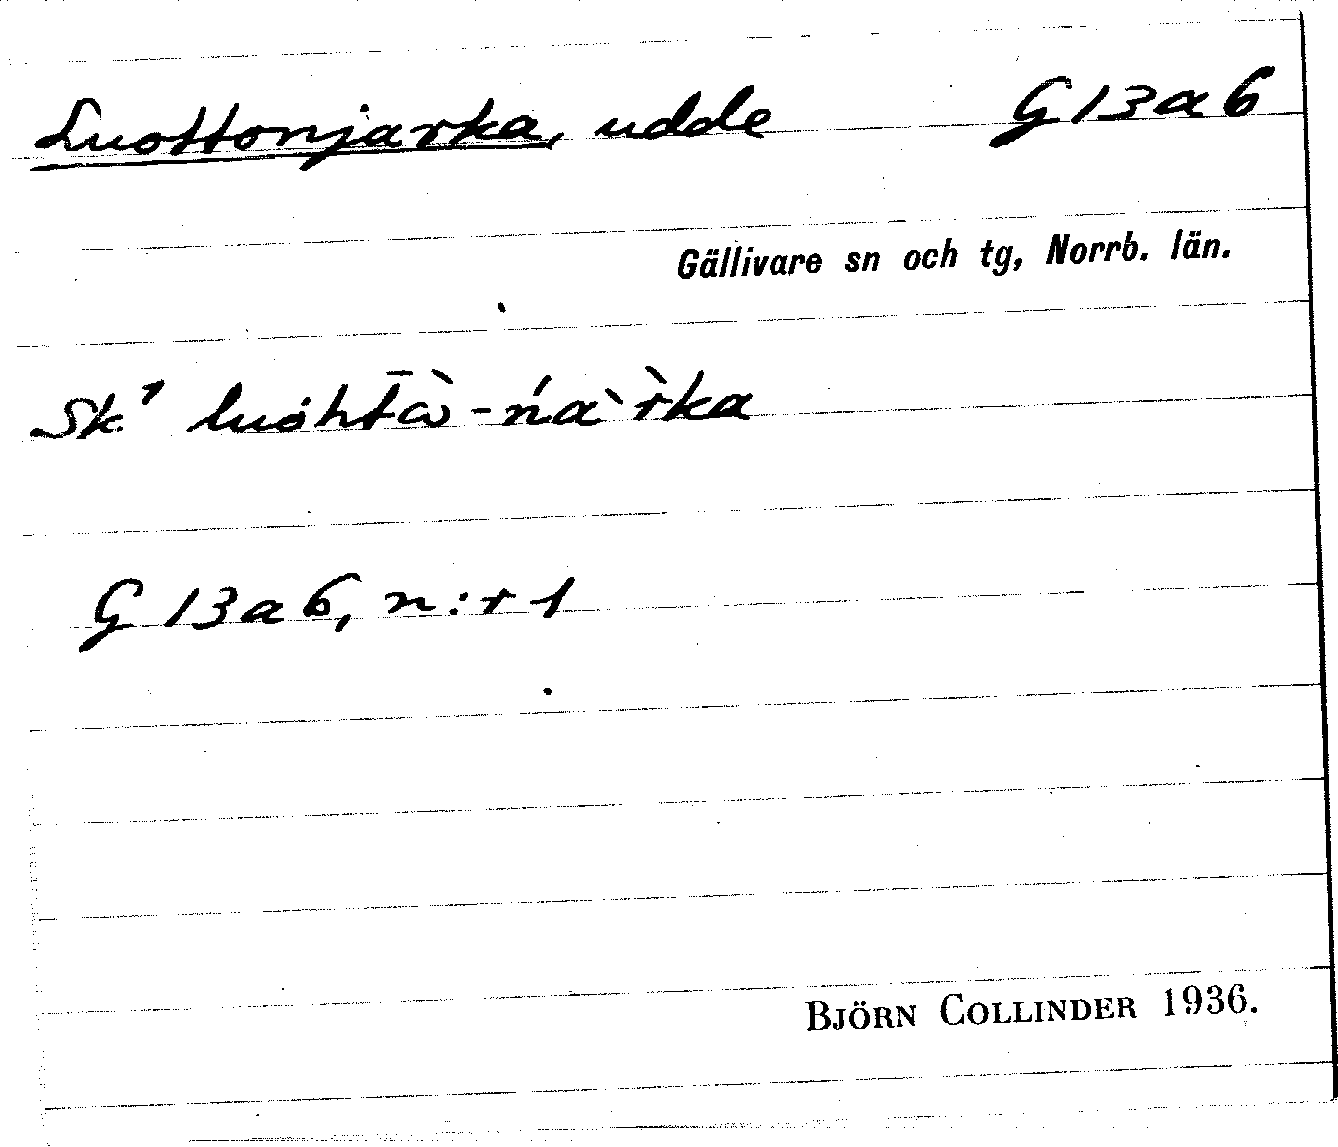 Luottonjarka, udde G 13 a 6
Gällivare sn och tg, Norrb. län.
Sk' luȯhtā̀-ńa`r̀ka
G 13 a 6, n:r 1
BJÖRN COLLINDER 1936.